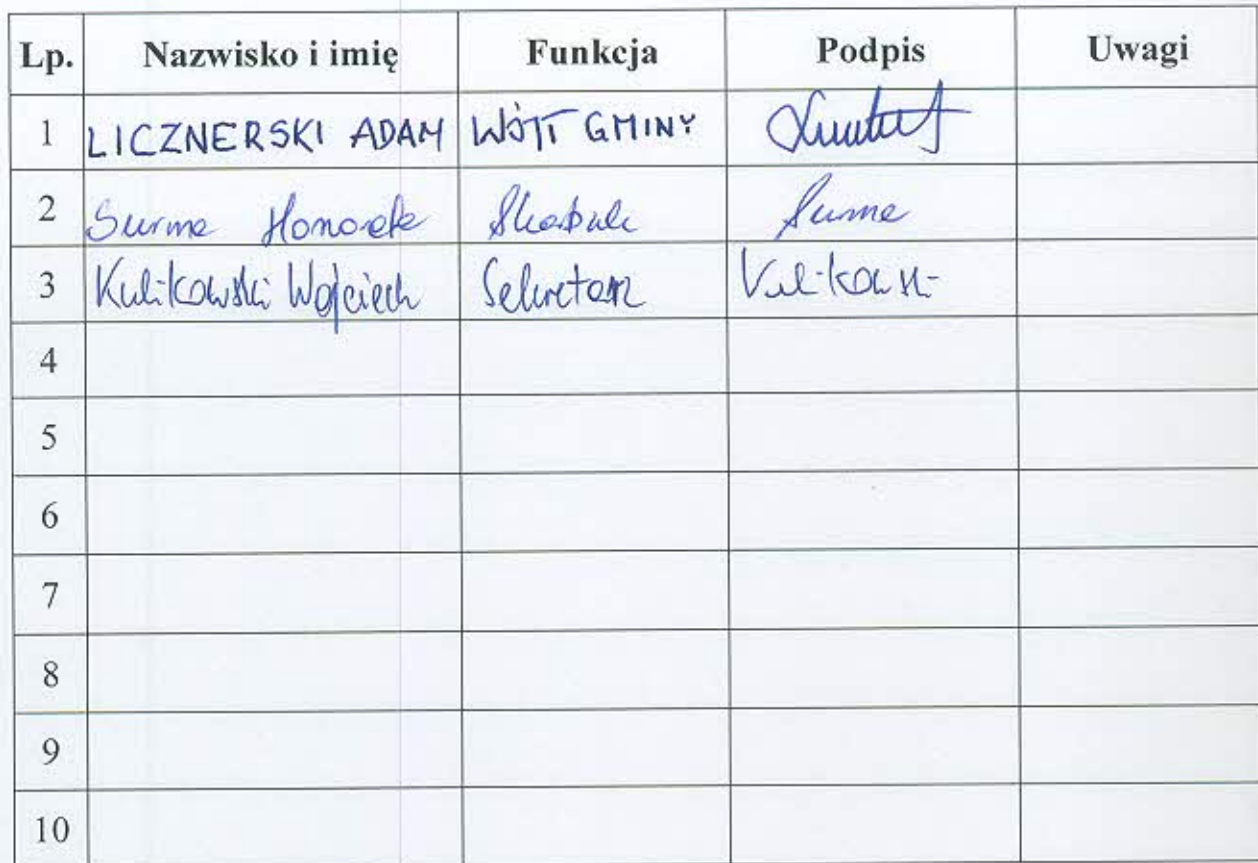 Lp. Nazwisko i imię Funkcja Podpis Uwagi
1 LICZNERSKI ADAM WÓJT GMINY
2 Surma Honorata Skarbnik Surma
3 Kulikowski Wojciech Sekretarz Kulikowski
4
5
6
7
8
9
10